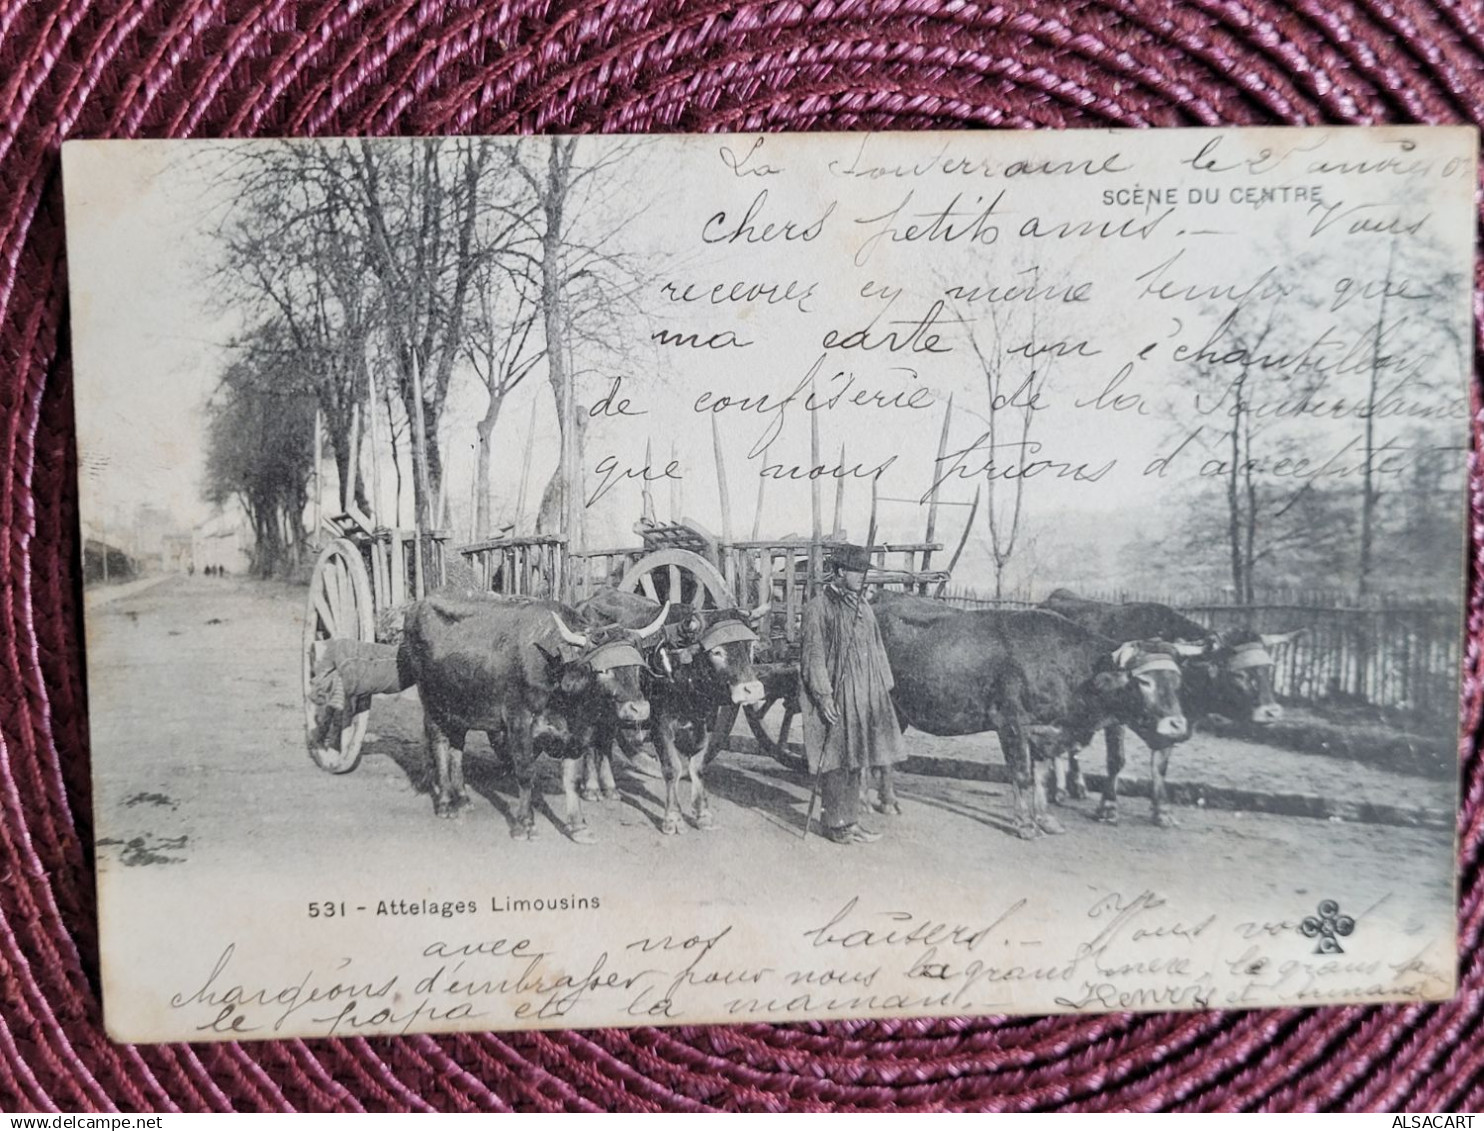 La Souterraine le 2 janvier
SCÈNE DU CENTRE
chers petits amis. - Vous
recevrez en même temps que
ma carte un échantillon
de confiserie de la Souterraine
que nous prions d'accepter
531 - Attelages Limousins
avec nos baisers. - Nous vous
chargeons d'embrasser pour nous la grand mère, le grand père
le papa et la maman. - Henry et
ALSACART